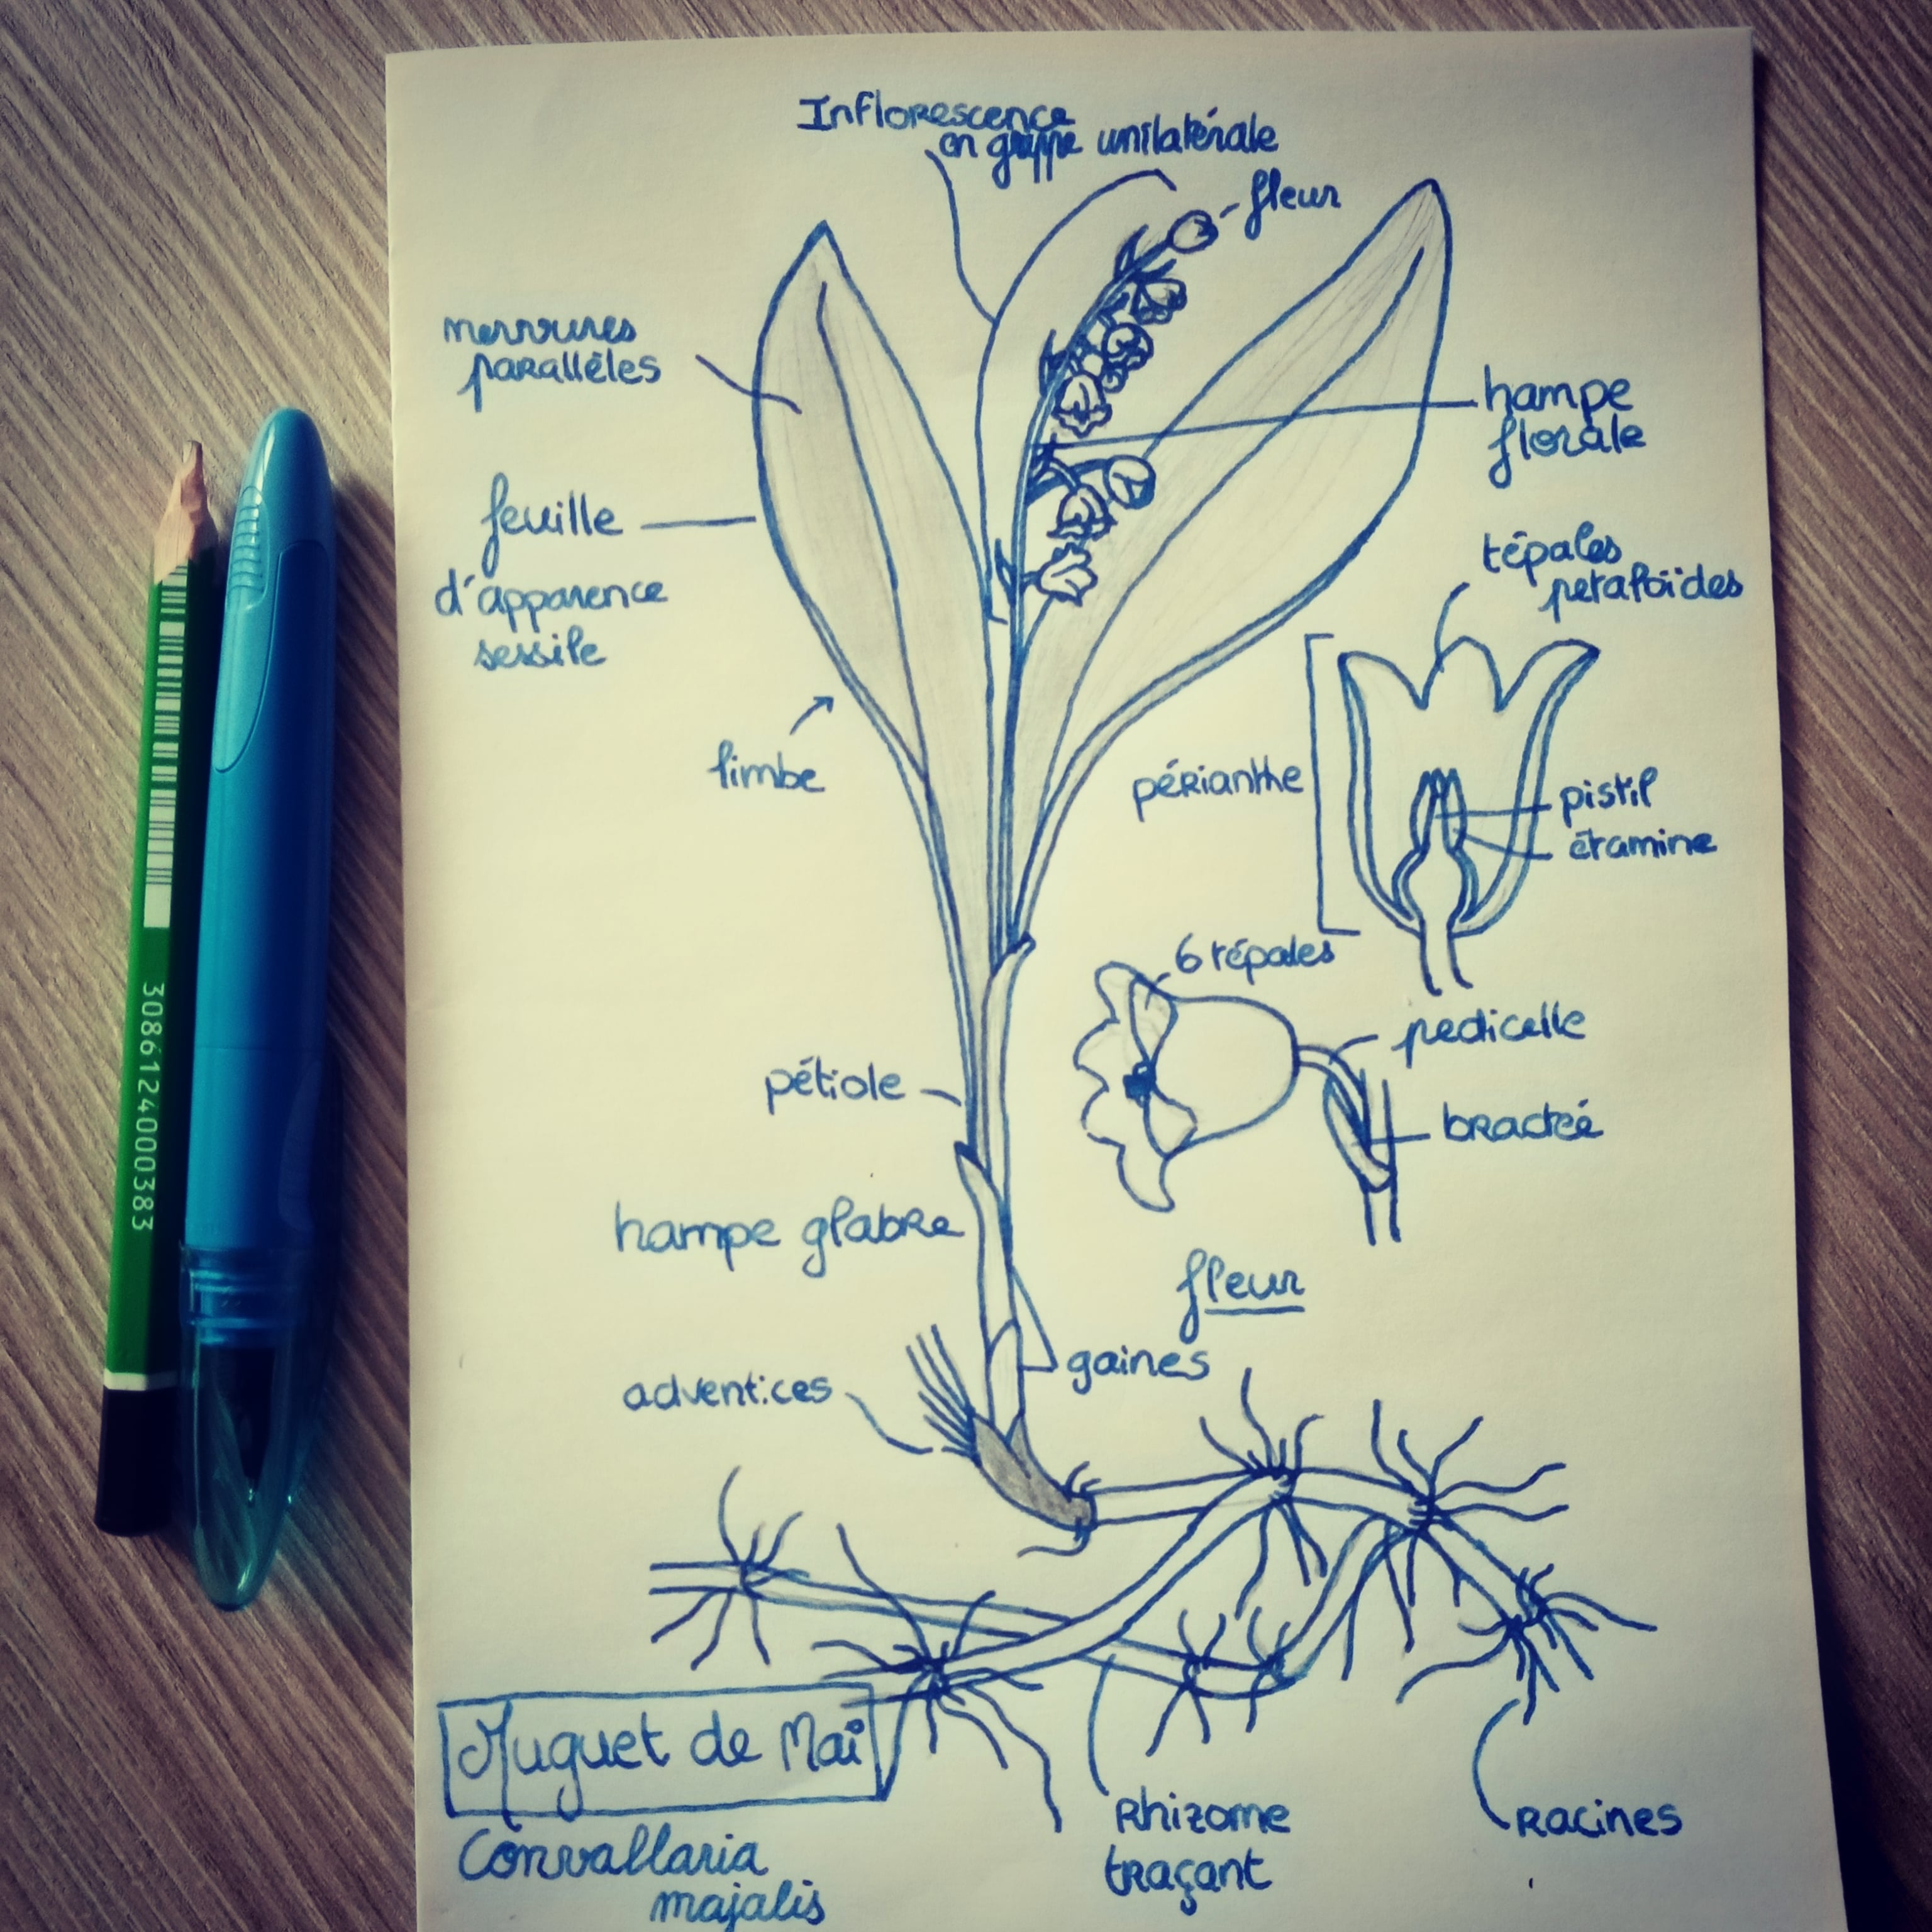 Inflorescence
en grappe unilatérale
fleur
nervures
parallèles
hampe
florale
feuille
d'apparence
sessile
tépales
pétaloïdes
limbe
périanthe
pistil
étamine
6 tépales
pedicelle
pétiole
bractée
hampe glabre
fleur
gaines
adventices
Muguet de Mai
Convallaria
majalis
Rhizome
traçant
Racines
308612400383